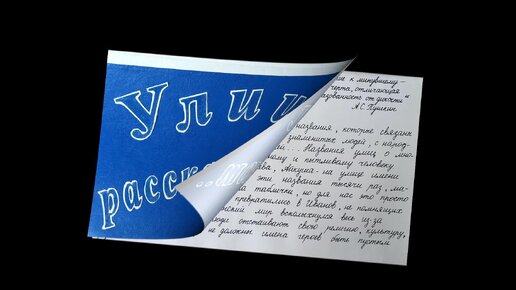 Улиц
расска
к минувшему –
черта, отличающая
от дикости
А.С. Пушкин
названия, которые связаны
знаменитых людей, с народ-
Названия улиц о мно-
и пытливому человеку
на улице имени
эти названия тысячи раз, ма-
табличка, но для нас это просто
превратились в Иванов, не помнящих
мир всколыхнулся весь из-за
отстаивают свою религию, культуру,
не должны имена героев быть пустым